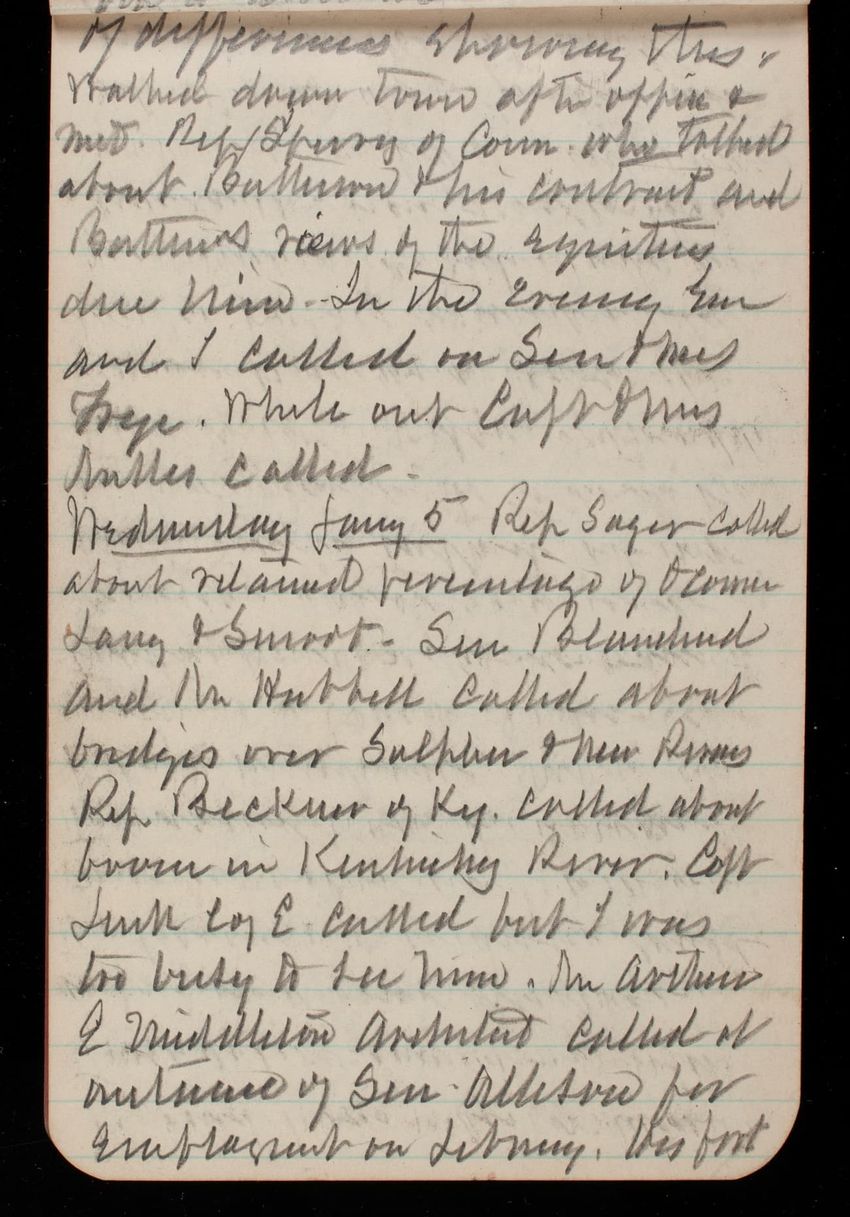 of differences showing this.
Walked down town after office &
met. Rep Sperry of Conn. who talked
about Batterson & his contract and
Battersons views of the equities
due him - In the evening Em
and I called on Sen & Mrs
Frye. While out Capt & Mrs
called -
Wednesday Jany 5 Rep Sager called
about retained percentage of
Lang & Smoot. - Sen Blanchard
and Mr Hubbell called about
bridges over Sulphur & New Rivers
Rep Beckner of Ky. called about
boom in Kentucky River. Capt
Lusk C of E called but I was
too busy to see him. Mr Arthur
E Middleton Architect called at
instance of Sen. Allison for
Employment on Library. His fort